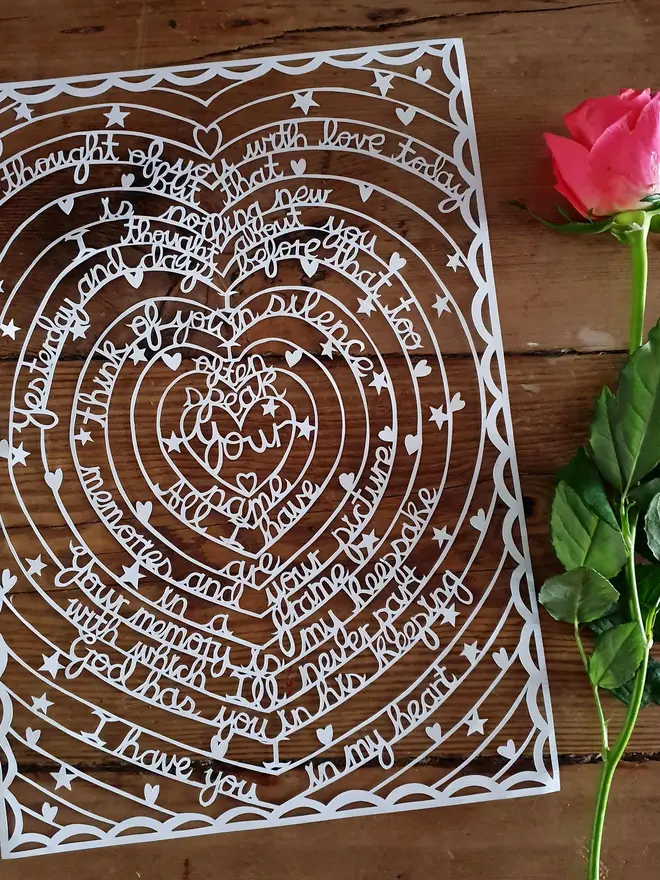 thought of you with love today
but that
is nothing new
I thought about you
Yesterday and days before that too
I
think of you in silence
often
speak
Your
name
All I have
are
memories and your picture
in a frame
Your memory is my keepsake
with which I'll never part
God has you in his keeping
I have you in my heart